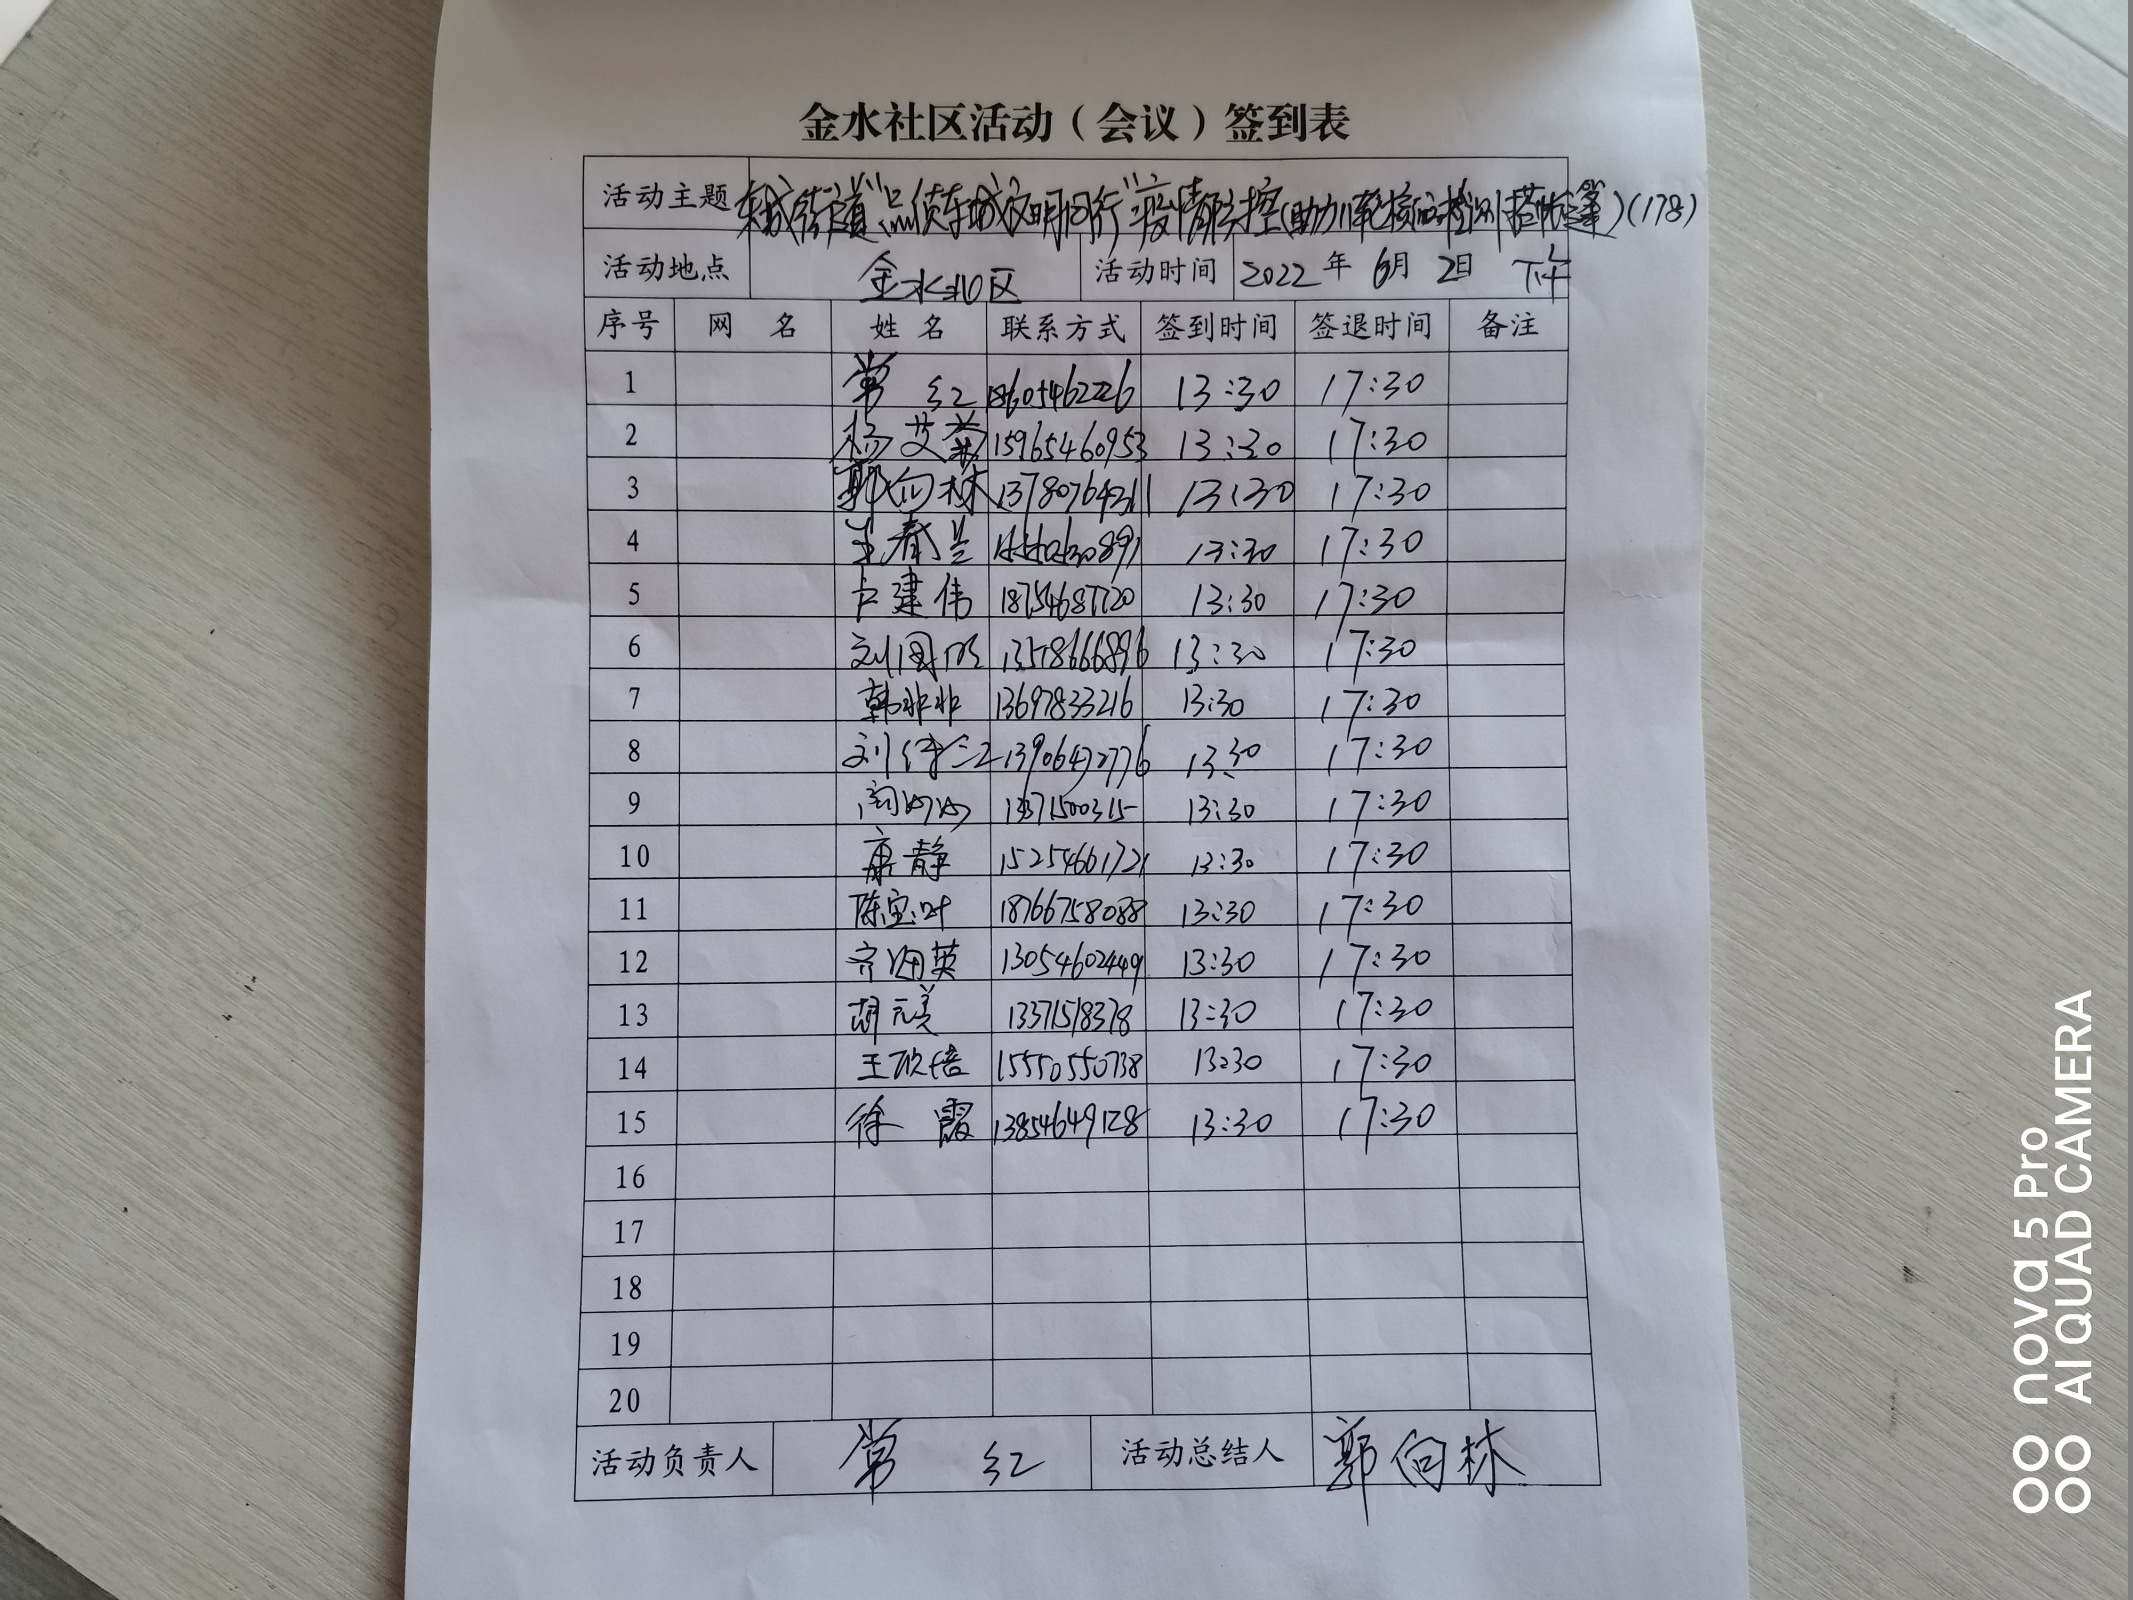 金水社区活动（会议）签到表
活动主题 东城街道“品质东城文明同行”疫情防控(助力 轮核酸检测搭帐篷)(178)
活动地点 金水社区 活动时间 2022年6月2日 下午
序号 网 名 姓 名 联系方式 签到时间 签退时间 备注
1 常 红 18605462226 13:30 17:30
2 杨艾菊 15965460953 13:30 17:30
3 郭向林 13780764211 13:30 17:30
4 春兰 13:30 17:30
5 建伟 18754687720 13:30 17:30
6 刘国明 13518666896 13:30 17:30
7 韩非非 13697833216 13:30 17:30
8 刘 13:30 17:30
9 13371500315 13:30 17:30
10 唐静 15254661721 13:30 17:30
11 陈宝叶 18766758088 13:30 17:30
12 齐 英 13054602449 13:30 17:30
13 胡元美 13371518378 13:30 17:30
14 王欣倍 15550550738 13:30 17:30
15 徐 霞 13854649128 13:30 17:30
16
17
18
19
20
活动负责人 常 红 活动总结人 郭向林
nova 5 Pro
AI QUAD CAMERA